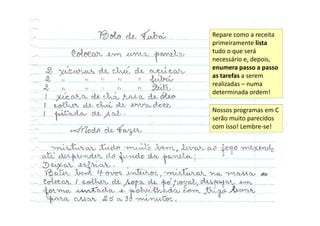 Bolo de Fubá
Colocar em uma panela
2 xícaras de chá de açúcar
2 " " " " " fubá
2 " " " " " leite
1 xícara de chá, rasa de óleo
1 colher de chá de erva doce
1 pitada de sal.
Modo de Fazer
misturar tudo muito bem, levar ao fogo mexendo
até desprender do fundo da panela;
Deixar esfriar.
Bater bem 4 ovos inteiros, misturar na massa e
colocar 1 colher de sopa de pó royal, despejar em
forma untada e polvilhada com trigo levar
para assar 25 a 35 minutos.
Repare como a receita
primeiramente lista
tudo o que será
necessário e, depois,
enumera passo a passo
as tarefas a serem
realizadas – numa
determinada ordem!
Nossos programas em C
serão muito parecidos
com isso! Lembre-se!